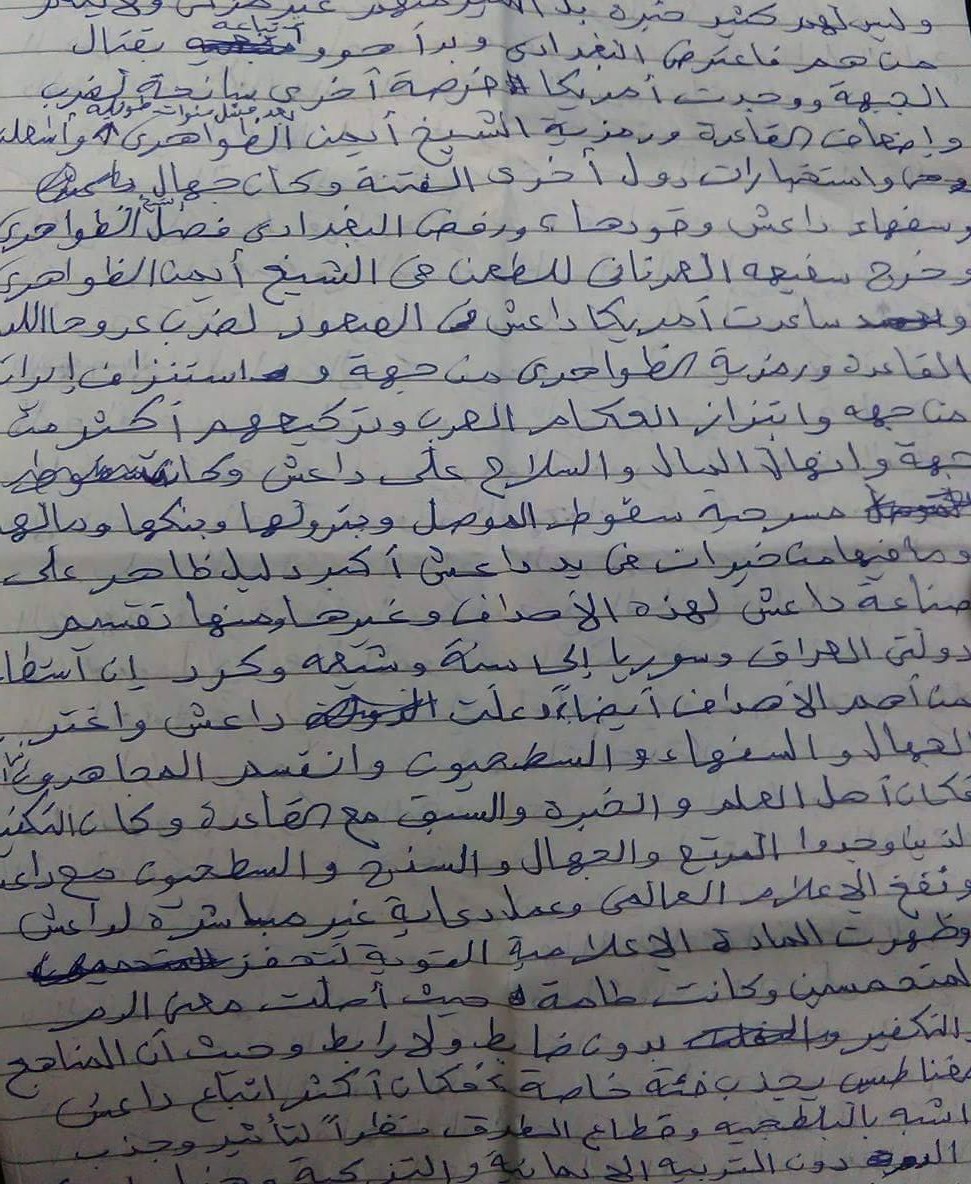 وليس لهم كثير خبرة بل
من هم فاعترض البغدادى وبدأ هو وأتباعه بقتال
الجبهة ووجدت أمريكا فرصة أخرى سانحة لضرب
وإضعاف القاعدة ورمزية الشيخ أيمن الظواهرى بعد فشل سنوات طويلة وأشعلت
واستخبارات دول أخرى الفتنة وكان جهال
وسفهاء داعش وقودها ورفض البغدادى فصل الشيخ الظواهرى
وخرج سفيهه العدنانى للطعن فى الشيخ أيمن الظواهرى
و ساعدت أمريكا داعش فى الصعود لضرب عدوها اللدود
القاعدة ورمزية الظواهرى من جهة و استنزاف إيران
من جهه وابتزاز الحكام العرب وتركيعهم أكثر من
جهة وانهال المال والسلاح على داعش وكانت
مسرحية سقوط الموصل وبترولها وبنكها ومالها
وما فيها من خيرات فى يد داعش أكبر دليل ظاهر على
صناعة داعش لهذه الأهداف وغيرها ومنها تقسيم
دولتى العراق وسوريا إلى سنة وشيعه وكرد إن استطا
من أهم الأهداف أيضاً دعلت داعش واغتر
الجهال والسفهاء والسطحيون وانقسم المجاهدون
فكان أهل العلم والخبرة والسبق مع القاعدة وكان
لذين وجدوا المرتع والجهال والسذج والسطحيون مع داعش
ونفخ الإعلام العالمى وعمل دعاية غير مباشرة لداعش
وظهرت المادة الإعلامية القوية لتحفز
المتحمسين وكانت طامة حيث أصلت معنى الدم
والتكفير بدون ضابط ولا رابط وحيث أن المناهج
مغناطيس يجذب فئة خاصة فكان أكثر اتباع داعش
اشبه بالبلطجيه وقطاع الطرق نظراً لتأثير وجذب
دون التربيه الإيمانية والتزكية